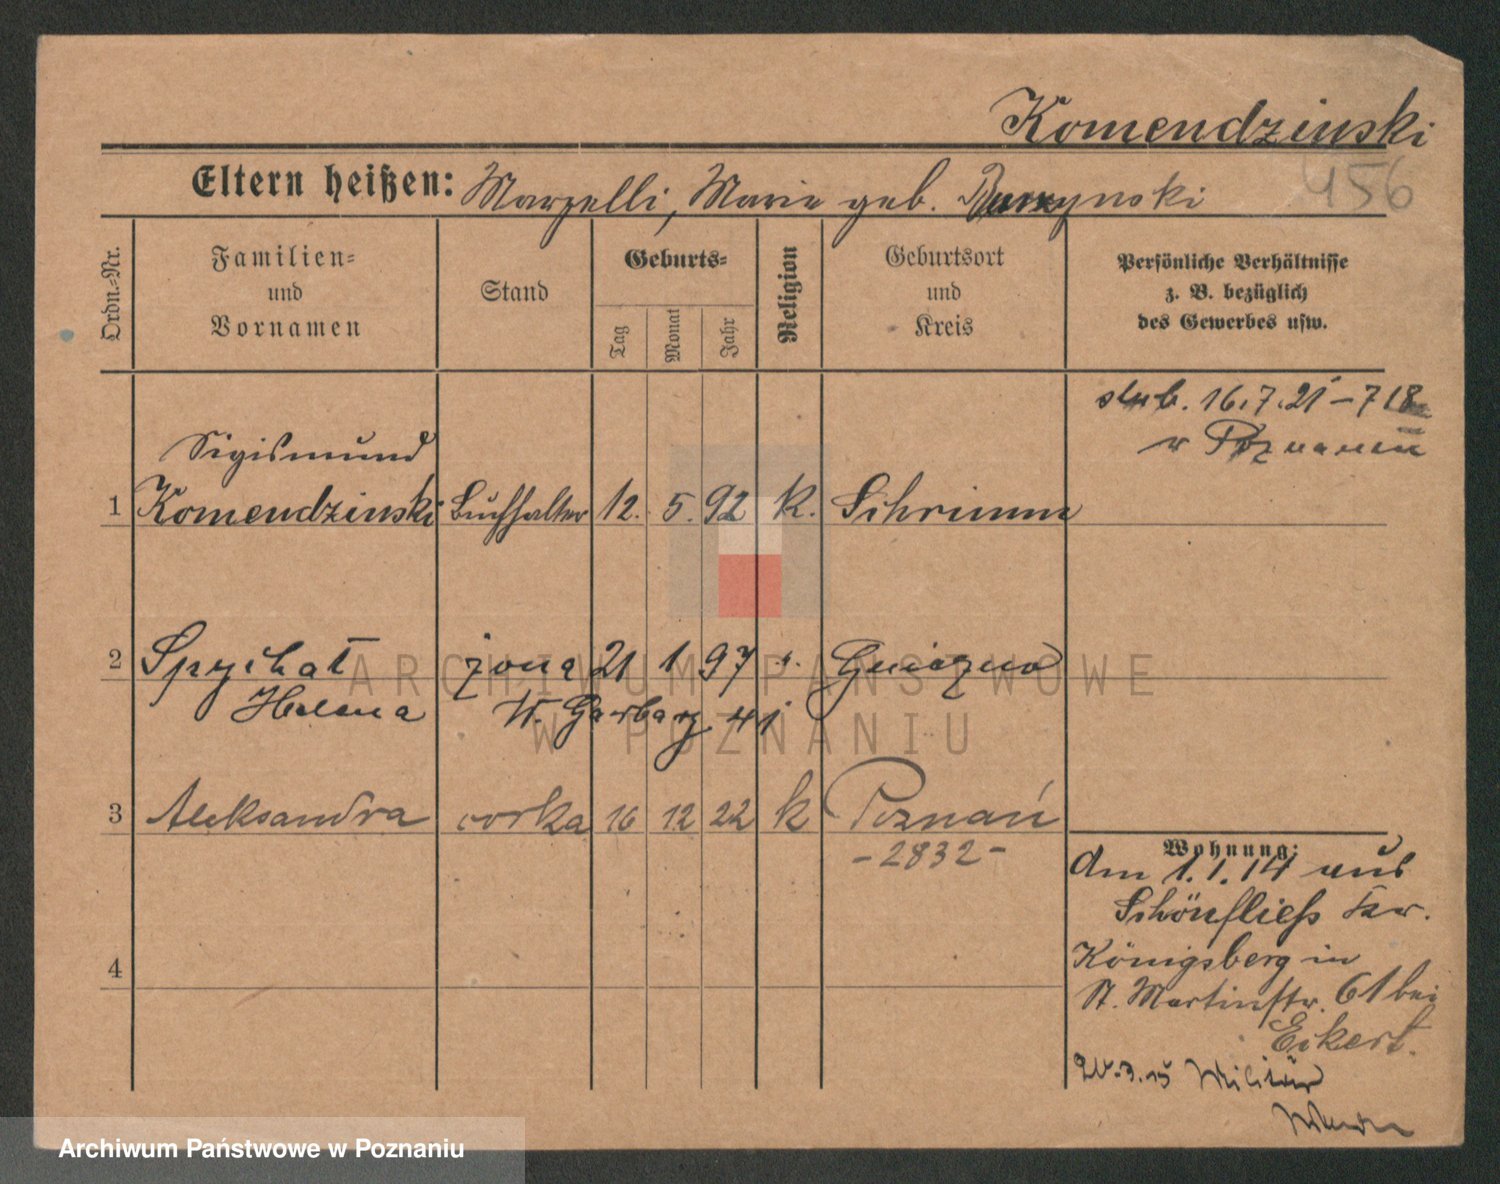 Komendzinski
456
Eltern heißen: Marzelli, Marie geb.
Ordn.-Nr.
Familien-
und
Vornamen
Stand
Geburts-
Tag
Monat
Jahr
Religion
Geburtsort
und
Kreis
Persönliche Verhältnisse
z. B. bezüglich
des Gewerbes usw.
slub. 16.7.21 – 718
w Poznaniu
Sigismund
1 Komendzinski Buchhalter 12. 5. 92 K. Schrimm
2 Spychał żona 21 1 97 Gniezno
Helena W. Garbary 41
3 Aleksandra corka 16 12 22 k Poznań
- 2832 -
4
Wohnung:
Am 1.1.14 aus
Schönfließ Kr.
Königsberg in
St. Martinstr. 61 bei
Eikert.
Militär
ARCHIWUM PAŃSTWOWE
W POZNANIU
Archiwum Państwowe w Poznaniu